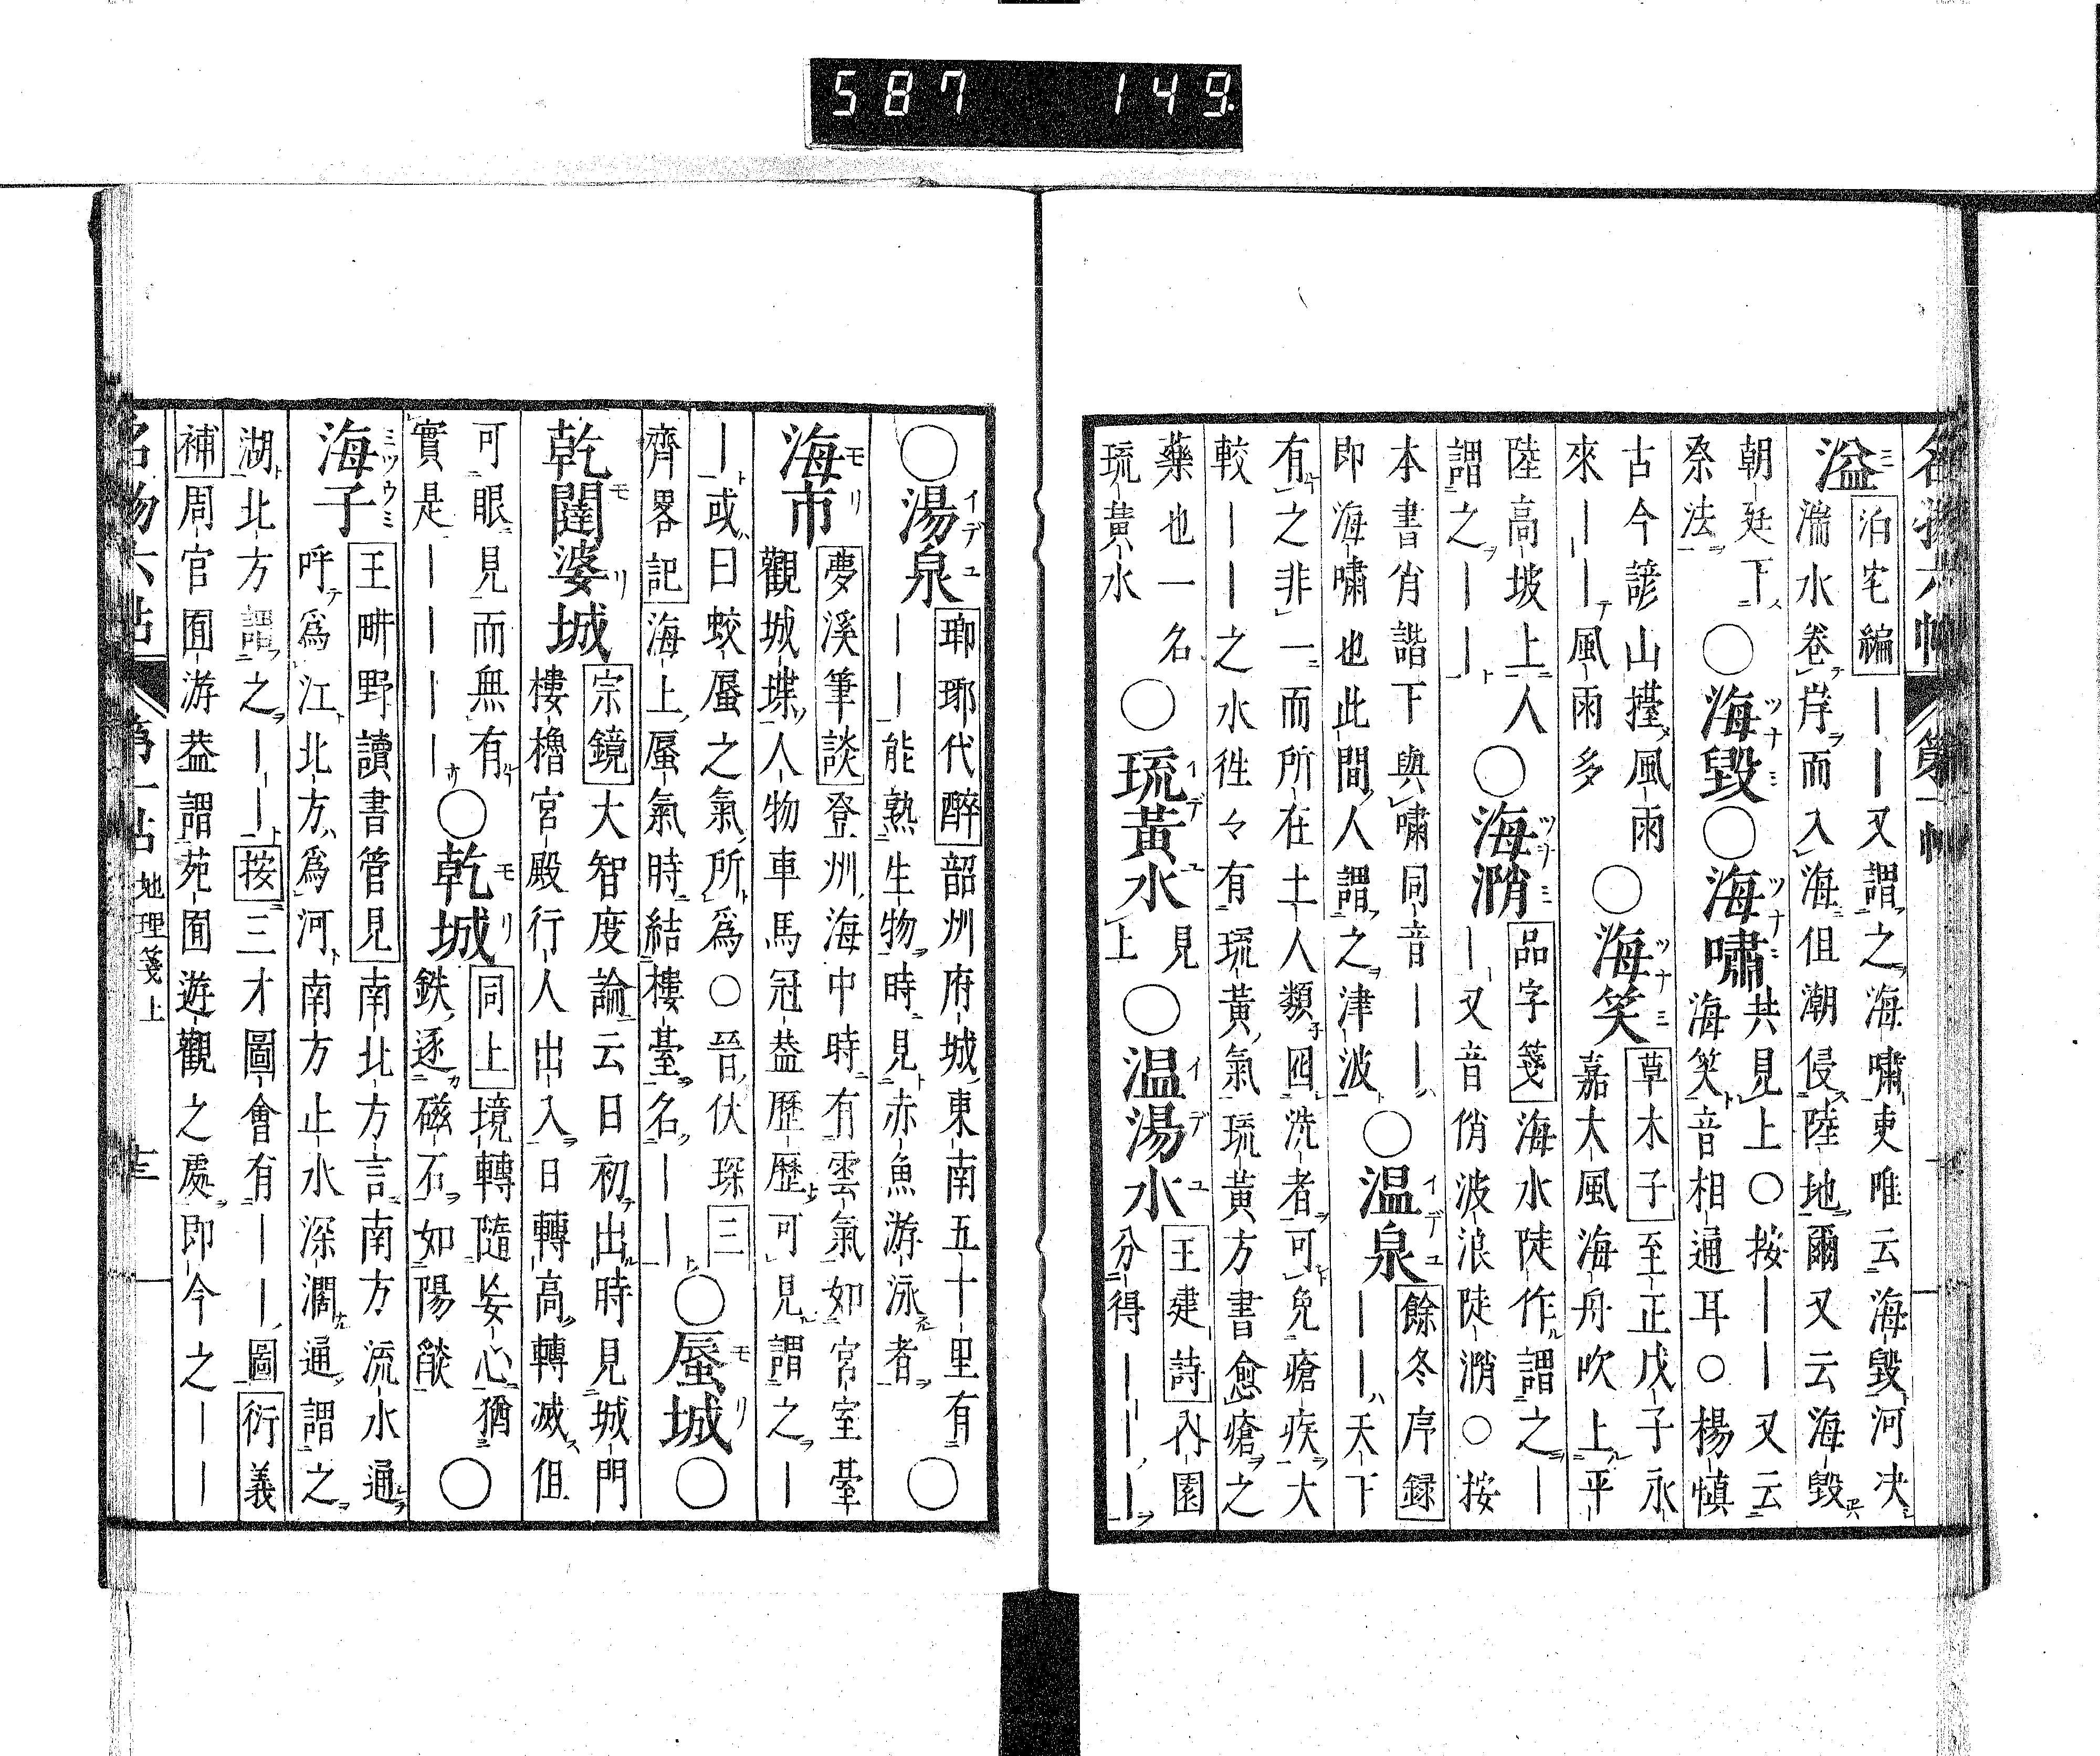 587 149
溢 泊宅編 ｜｜又謂之海嘯吏唯云海毀河决
湍水卷岸而入海但潮侵陸地爾又云海毀
朝廷下 ○海毀○海嘯 共見上○按｜｜又云
祭法 海笑音相通耳○楊慎
古今諺山擡風雨 ○海笑 草木子 至正戊子永
來｜｜風雨多 嘉大風海舟吹上平
陸高坡上人 ○海潲 品字箋 海水陡作謂之｜
謂之｜｜ ｜又音俏波浪陡潲○按
本書肖諧下與嘯同音｜｜ ○温泉 餘冬序録
即海嘯也此間人謂之津波 ｜｜天下
有之非一而所在土人類四洗者可免瘡疾大
較｜｜之水徃々有琉黃氣琉黃方書愈瘡之
藥也一名 ○琉黃水 見 ○温湯水 王建詩 內園
琉黃水 上 分得｜｜｜
○湯泉 瑯琊代醉 韶州府城東南五十里有
｜｜能熟生物時見赤魚游泳者 ○
海市 夢溪筆談 登州海中時有雲氣如宮室臺
觀城堞人物車馬冠葢歷歷可見謂之｜
｜或曰蛟蜃之氣所爲○晉伏琛三
齊畧記 海上蜃氣時結樓臺名｜｜ ○蜃城 ○
乾闥婆城 宗鏡 大智度論云日初出時見城門
樓櫓宮殿行人出入日轉高轉滅但
可眼見而無有 ○乾城 同上 境轉隨妄心猶
實是｜｜｜｜ 鉄逐磁石如陽燄 ○
海子 王畊野讀書管見 南北方言南方流水通
呼爲江北方爲河南方止水深濶通謂之
湖北方謂之｜｜ 按 三才圖會有｜｜圖 衍義
補 周官囿游葢謂苑囿遊觀之處即今之｜｜
名物六帖 第一帖 地理箋上